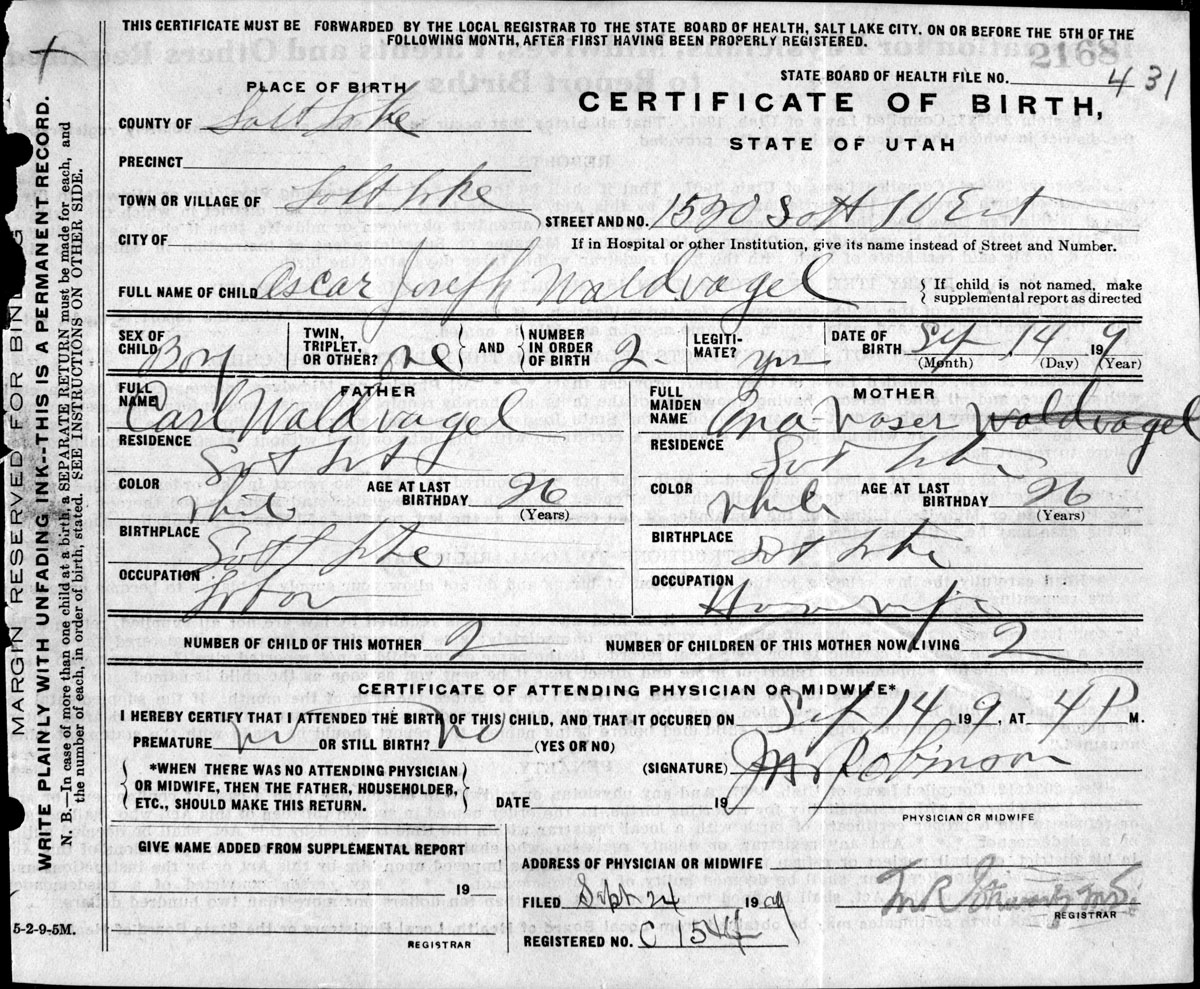 THIS CERTIFICATE MUST BE FORWARDED BY THE LOCAL REGISTRAR TO THE STATE BOARD OF HEALTH, SALT LAKE CITY, ON OR BEFORE THE 5TH OF THE
FOLLOWING MONTH, AFTER FIRST HAVING BEEN PROPERLY REGISTERED.
2168
STATE BOARD OF HEALTH FILE NO. 431
PLACE OF BIRTH
CERTIFICATE OF BIRTH,
STATE OF UTAH
COUNTY OF Salt Lake
PRECINCT
TOWN OR VILLAGE OF Salt Lake
STREET AND NO. 1520
CITY OF
If in Hospital or other Institution, give its name instead of Street and Number.
FULL NAME OF CHILD Oscar Joseph Waldvagel
If child is not named, make
supplemental report as directed
SEX OF CHILD Boy
TWIN, TRIPLET, OR OTHER? AND NUMBER IN ORDER OF BIRTH 2
LEGITI-MATE? yes
DATE OF BIRTH Sep 14 199
(Month) (Day) (Year)
FATHER
FULL NAME Carl Waldvagel
RESIDENCE Salt Lake
COLOR White AGE AT LAST BIRTHDAY 26
(Years)
BIRTHPLACE Salt Lake
OCCUPATION
MOTHER
FULL MAIDEN NAME Ana Waldvagel
RESIDENCE Salt Lake
COLOR White AGE AT LAST BIRTHDAY 26
(Years)
BIRTHPLACE Salt Lake
OCCUPATION Housewife
NUMBER OF CHILD OF THIS MOTHER 2 NUMBER OF CHILDREN OF THIS MOTHER NOW LIVING 2
CERTIFICATE OF ATTENDING PHYSICIAN OR MIDWIFE*
I HEREBY CERTIFY THAT I ATTENDED THE BIRTH OF THIS CHILD, AND THAT IT OCCURED ON Sep 14 199, AT 4 P M.
PREMATURE OR STILL BIRTH? no (YES OR NO)
(SIGNATURE) Robinson
*WHEN THERE WAS NO ATTENDING PHYSICIAN
OR MIDWIFE, THEN THE FATHER, HOUSEHOLDER,
ETC., SHOULD MAKE THIS RETURN.
DATE 19
PHYSICIAN OR MIDWIFE
GIVE NAME ADDED FROM SUPPLEMENTAL REPORT
19
REGISTRAR
ADDRESS OF PHYSICIAN OR MIDWIFE
FILED Sept. 24 1909
REGISTRAR
REGISTERED NO. C 1544
5-2-9-5M.
MARGIN RESERVED FOR BINDING
WRITE PLAINLY WITH UNFADING INK--THIS IS A PERMANENT RECORD.
N. B.—In case of more than one child at a birth, a SEPARATE RETURN must be made for each, and
the number of each, in order of birth, stated. SEE INSTRUCTIONS ON OTHER SIDE.